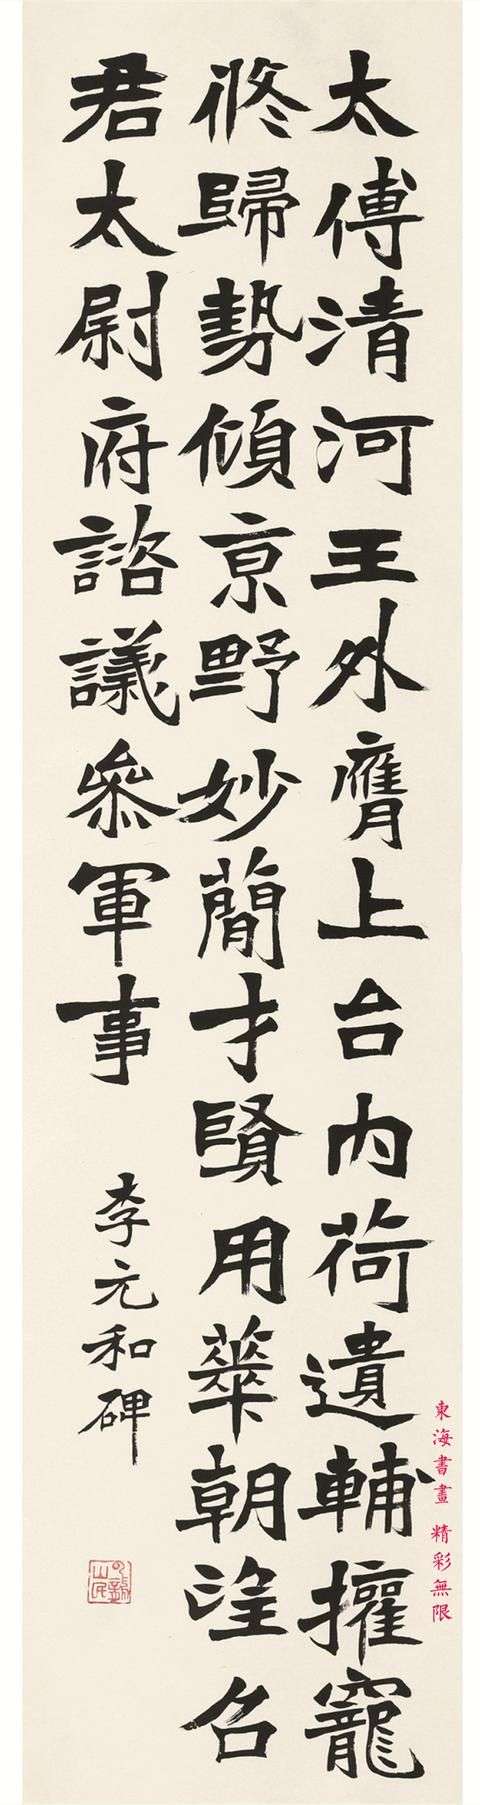 太傅清河王外膺上台內荷遺輔權寵
攸歸勢傾亰野妙簡才賢用華朝望召
君太尉府諮議叅軍事
李元和碑
東海書畫 精彩無限